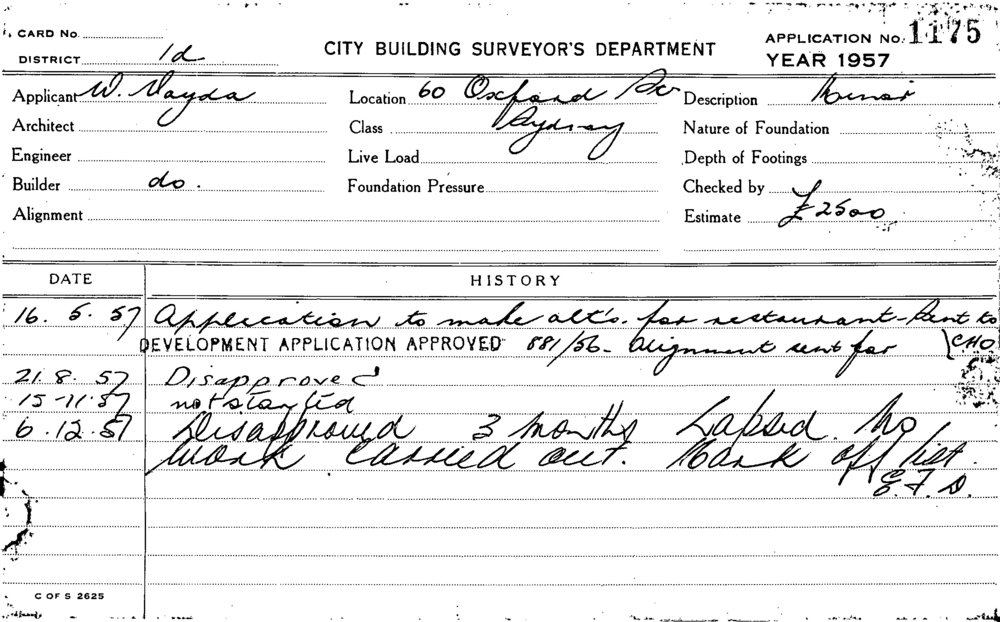 CARD No.
CITY BUILDING SURVEYOR'S DEPARTMENT
APPLICATION No. 1175
DISTRICT 1d
YEAR 1957
Applicant W. Vayda
Location 60 Oxford St
Description Minor
Architect
Class Sydney
Nature of Foundation
Engineer
Live Load
Depth of Footings
Builder do.
Foundation Pressure
Checked by
Alignment
Estimate £2500
DATE HISTORY
16. 5. 57 Application to make alt's. for restaurant - Sent to
DEVELOPMENT APPLICATION APPROVED 881/56 - Alignment sent for (CHO
21. 8. 57 Disapproved
15-11-57 not started
6. 12. 57 Disapproved 3 months Lapsed. No
work carried out. Mark off list.
E. F. D.
C OF S 2625